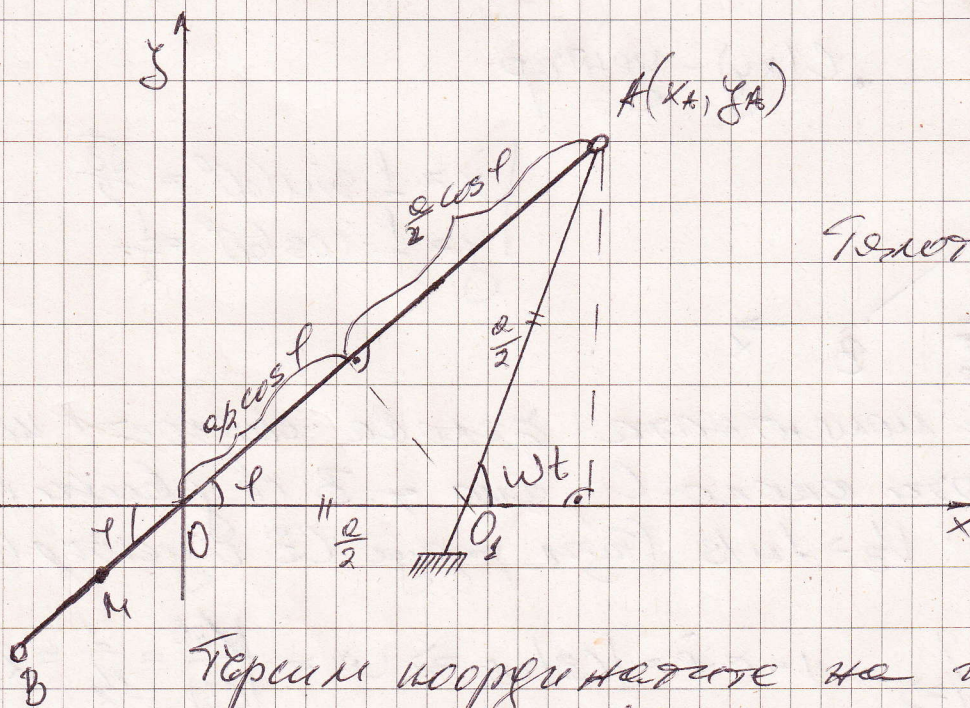 y
A(x_A, y_A)
a/2 cos φ
Тялот
a/2
a/2 cos φ
ωt
φ
φ
O
a/2
O₁
x
M
B
Търсим координатите на